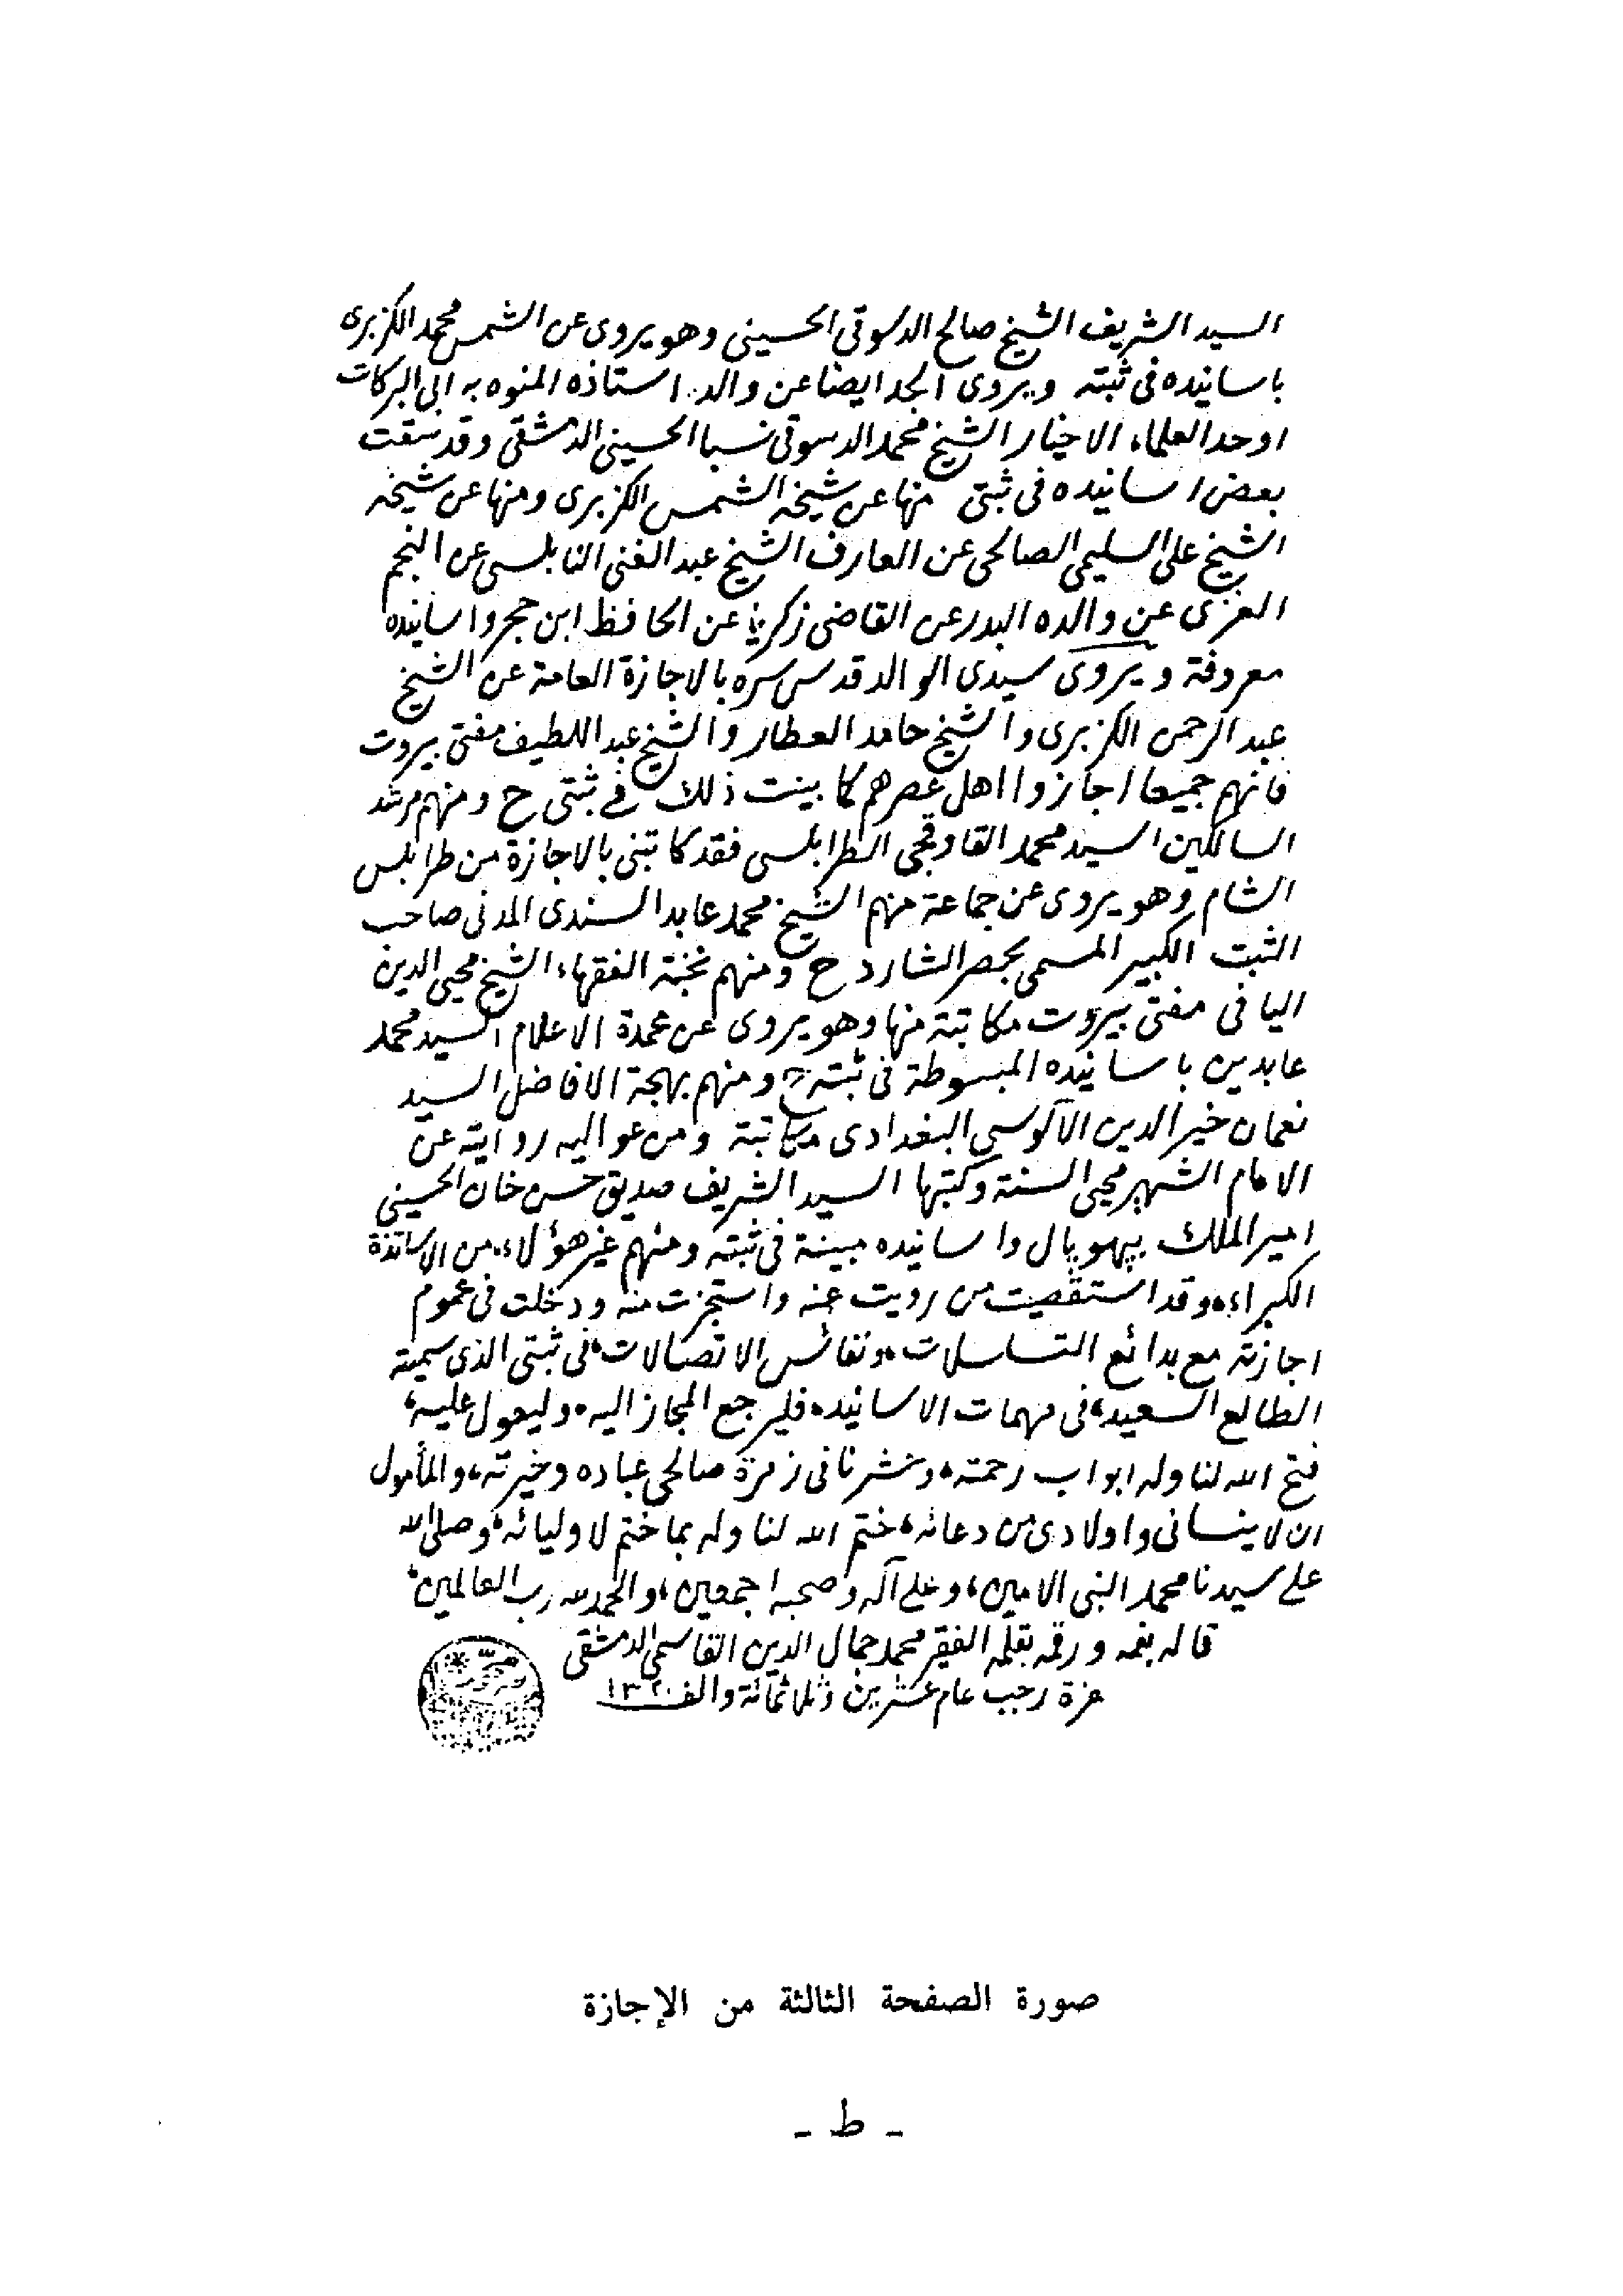 السيد الشريف الشيخ صالح الدسوقي الحسيني وهو يروى عن الشمس محمد الكزبرى
باسانيده فى ثبته ويروى الجد ايضا عن والد استاذه المنوه به ابى البركات
اوحد العلماء الاخيار الشيخ محمد الدسوقى نسبا الحسينى الدمشقى وقد سقت
بعض اسانيده فى ثبتى منها عن شيخه الشمس الكزبرى ومنها عن شيخه
الشيخ على السليمى الصالحى عن العارف الشيخ عبد الغنى النابلسى عن النجم
الغزى عن والده البدر عن القاضى زكريا عن الحافظ ابن حجر واسانيده
معروفة ويروى سيدى الوالد قدس سره بالاجازة العامة عن الشيخ
عبد الرحمن الكزبرى والشيخ حامد العطار والشيخ عبد اللطيف مفتى بيروت
فانهم جميعا اجازوا اهل عصرهم كما بينت ذلك فى ثبتى ح ومنهم مرشد
السالكين السيد محمد القاوقجى الطرابلسى فقد كاتبنى بالاجازة من طرابلس
الشام وهو يروى عن جماعة منهم الشيخ محمد عابد السندى المدنى صاحب
الثبت الكبير المسمى بحصر الشارد ح ومنهم نخبة الفقهاء الشيخ محيى الدين
اليافى مفتى بيروت مكاتبة منها وهو يروى عن عمدة الاعلام السيد محمد
عابدين باسانيده المبسوطة فى ثبته ح ومنهم بهجة الافاضل السيد
نعمان خير الدين الآلوسى البغدادى مكاتبة ومن عواليه روايته عن
الامام الشهير محيى السنة وكتبها السيد الشريف صديق حسن خان الحسينى
امير الملك بپهوپال واسانيده مبينة فى ثبته ومنهم غير هؤلاء من الاساتذة
الكبراء، وقد استقصيت من رويت عنه واستجزت منه ودخلت فى عموم
اجازته مع بدائع التسلسلات، ونفائس الاتصالات، فى ثبتى الذى سميته
الطالع السعيد، فى مهمات الاسانيد، فليرجع المجاز اليه، وليعول عليه،
فتح الله لنا وله ابواب رحمته، وحشرنا فى زمرة صالحى عباده وخيرته، والمأمول
ان لا ينسانى واولادى من دعائه، ختم الله لنا وله بما ختم لاوليائه، وصلى الله
على سيدنا محمد النبى الامين، وعلى آله وصحبه اجمعين، والحمد لله رب العالمين،
قاله بفمه ورقمه بقلمه الفقير محمد جمال الدين القاسمى الدمشقى
غرة رجب عام عشرين وثلاثمائة والف ١٣٢٠
صورة الصفحة الثالثة من الإجازة
- ط -